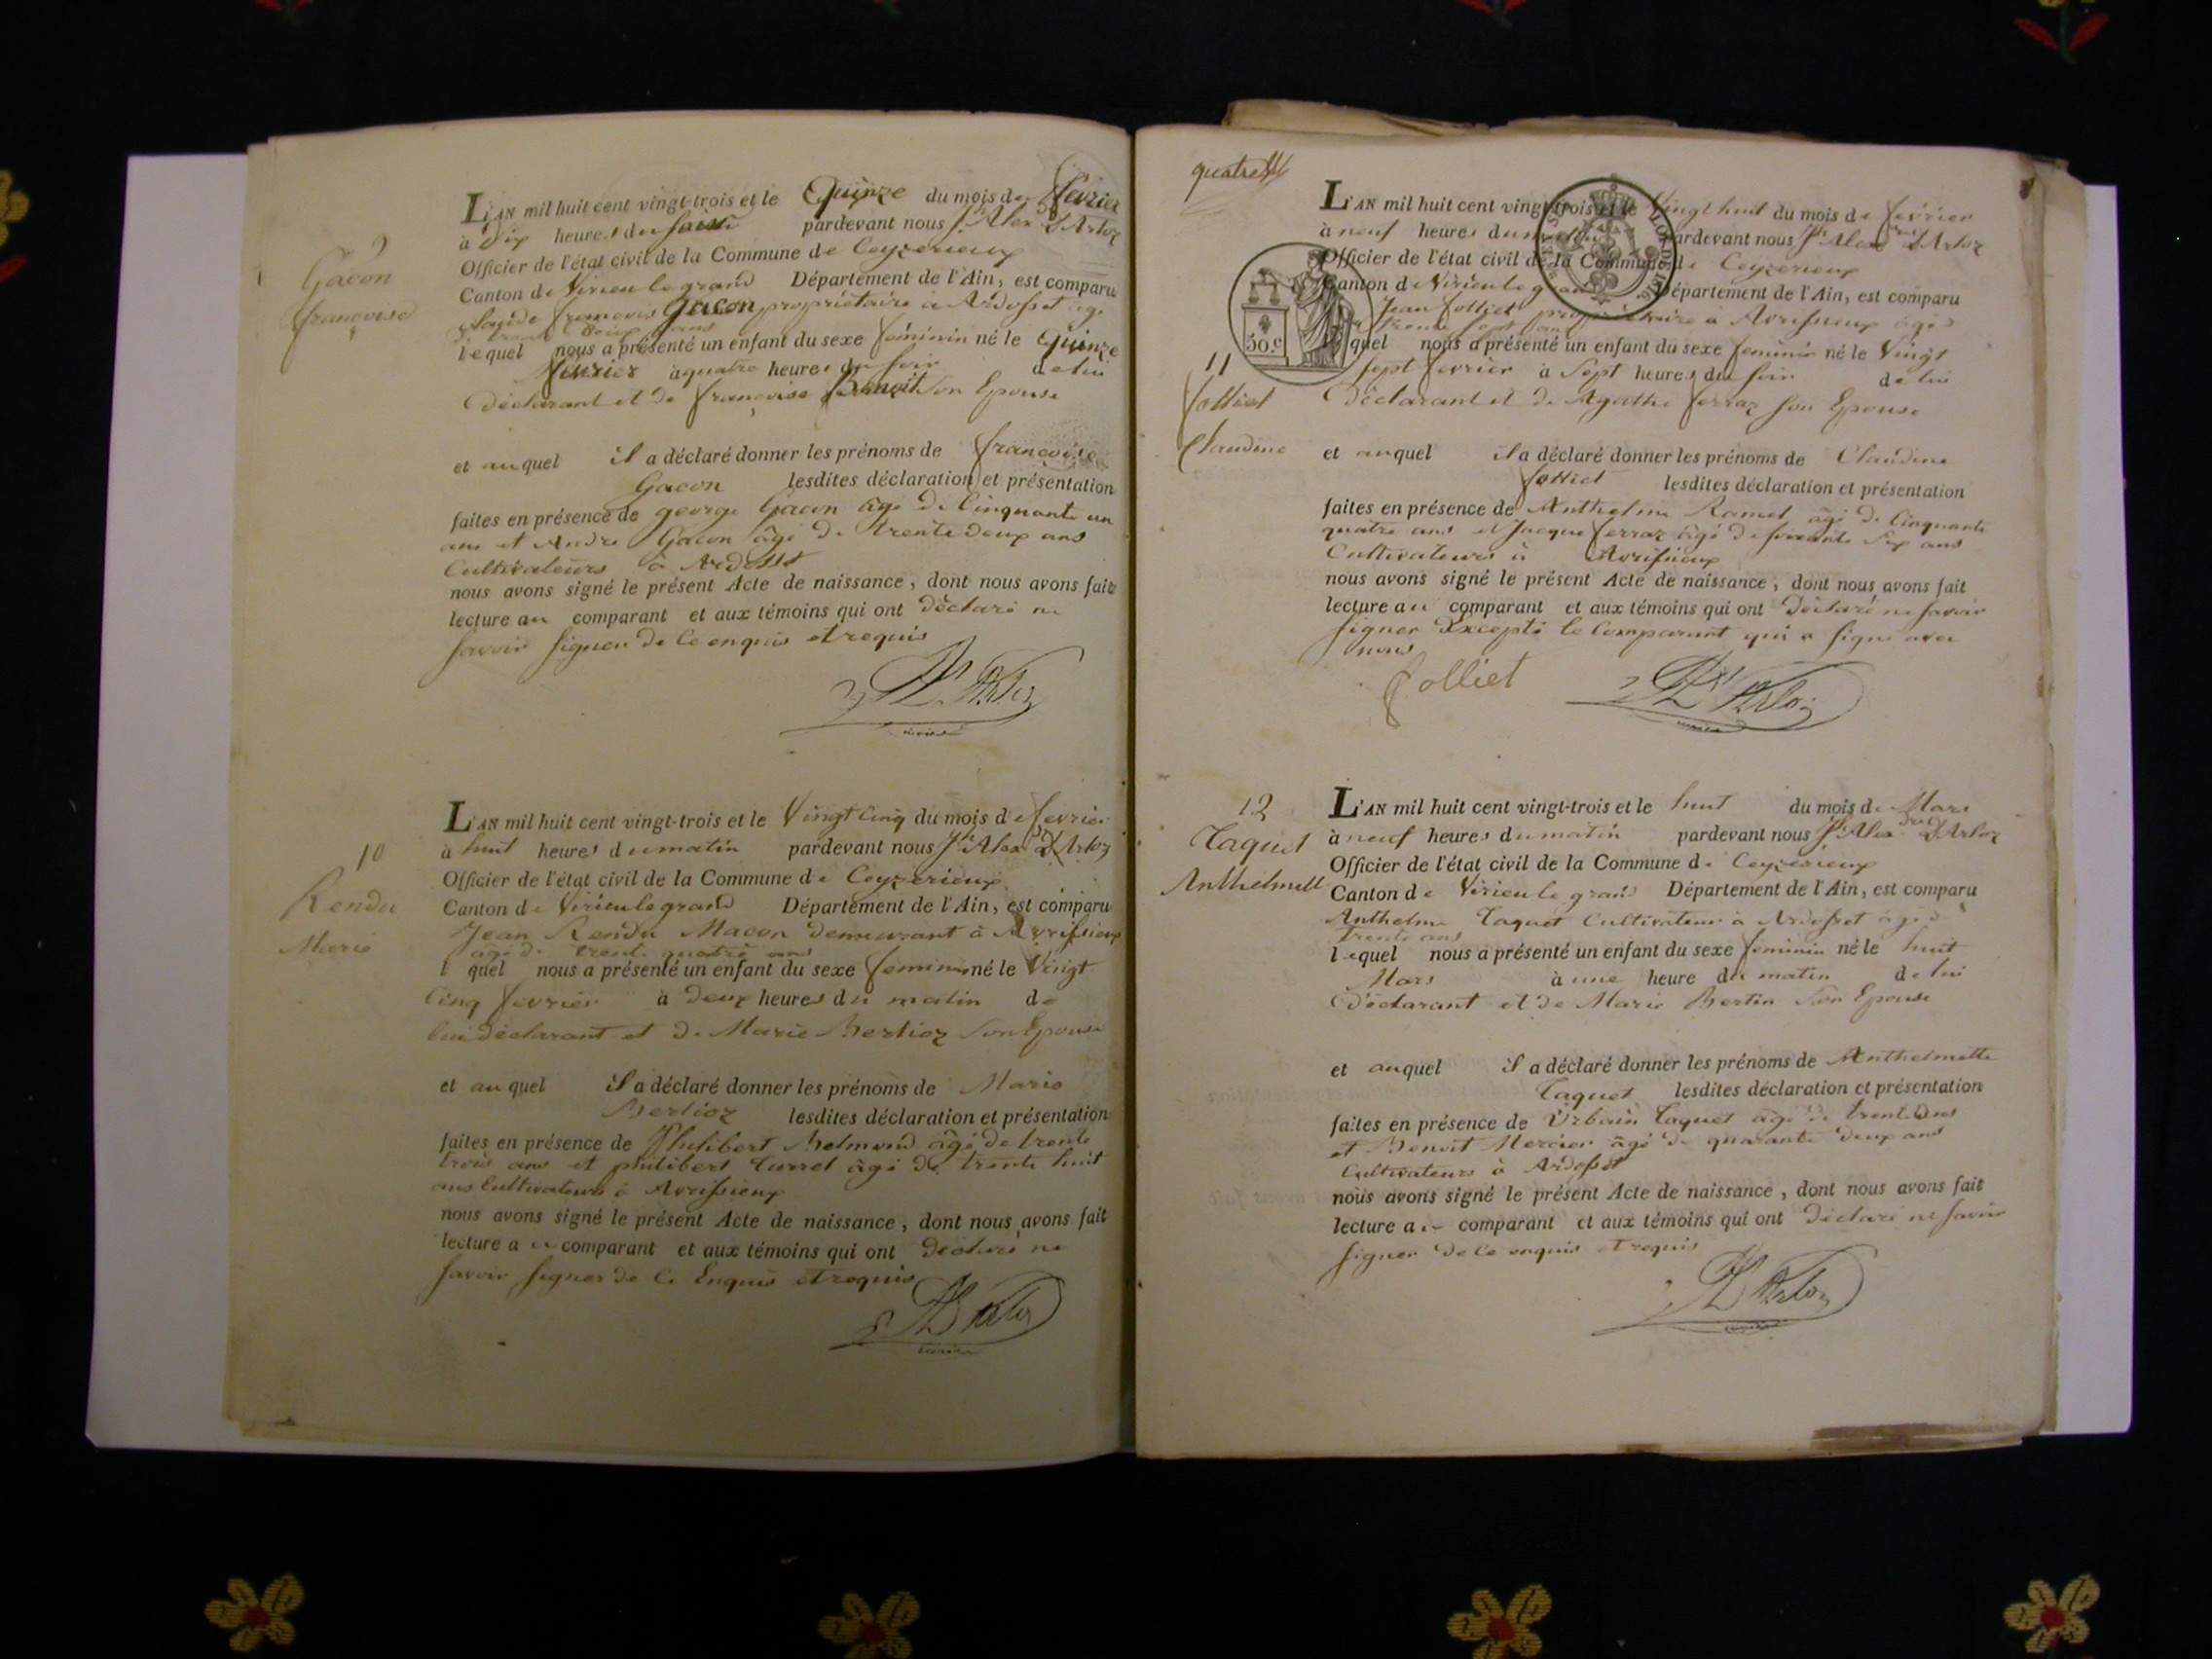 9
Gacon
francoise
L'AN mil huit cent vingt-trois et le Quinze du mois de fevrier
à dix heures du soir pardevant nous Jh Alexdre D'Arloz
Officier de l'état civil de la Commune de Ceyzerieux
Canton de Virieu le grand Département de l'Ain, est comparu
françois Gacon propriétaire à Ardosset âgé
de ans
lequel nous a présenté un enfant du sexe féminin né le Quinze
fevrier à quatre heures du soir de lui
Déclarant et de françoise Benoit son Epouse
et auquel il a déclaré donner les prénoms de francoise
Gacon lesdites déclaration et présentation
faites en présence de george Gacon âgé de Cinquante un
ans et André Gacon âgé de trente deux ans
Cultivateurs à Ardosst
nous avons signé le présent Acte de naissance, dont nous avons fait
lecture au comparant et aux témoins qui ont déclaré ne
savoir signer de ce enquis et requis
10
Rendu
Marie
L'AN mil huit cent vingt-trois et le Vingt Cinq du mois de fevrier
à huit heures du matin pardevant nous Jh Alexdre D'Arloz
Officier de l'état civil de la Commune de Ceyzerieux
Canton de Virieu le grand Département de l'Ain, est comparu
Jean Rendu Macon demeurant à Avrissieux
âgé de trente quatre ans
l quel nous a présenté un enfant du sexe feminin né le Vingt
Cinq fevrier à deux heures du matin de
lui déclarant et de Marie Berlioz son Epouse
et auquel il a déclaré donner les prénoms de Marie
Berlioz lesdites déclaration et présentation
faites en présence de Philibert Belmond âgé de trente
trois ans et philibert âgé de trente huit
ans Cultivateurs à Avrissieux
nous avons signé le présent Acte de naissance, dont nous avons fait
lecture au comparant et aux témoins qui ont déclaré ne
savoir signer de Ce Enquis et requis
quatre
30.c
11
folliet
Claudine
L'AN mil huit cent vingt-trois et le Vingt huit du mois de fevrier
à neuf heures du matin pardevant nous Jh Alexdre D'Arloz
Officier de l'état civil de la Commune de Ceyzerieux
Canton de Virieu le grand Département de l'Ain, est comparu
Jean folliet propriétaire à Avrissieux âgé de
trente sept ans
lequel nous a présenté un enfant du sexe feminin né le Vingt
sept fevrier à Sept heures du soir de lui
Déclarant et de Agathe ferraz son Epouse
et auquel il a déclaré donner les prénoms de Claudine
folliet lesdites déclaration et présentation
faites en présence de Anthelme Ramel âgé de Cinquante
quatre ans et Jacque ferraz âgé de soixante six ans
Cultivateurs à Avrissieux
nous avons signé le présent Acte de naissance, dont nous avons fait
lecture au comparant et aux témoins qui ont Déclaré ne savoir
signer Excepté le Comparant qui a signé avec
nous
folliet
12
Taquet
Anthelmette
L'AN mil huit cent vingt-trois et le huit du mois de Mars
à neuf heures du matin pardevant nous Jh Alexdre D'Arloz
Officier de l'état civil de la Commune de Ceyzerieux
Canton de Virieu le grand Département de l'Ain, est comparu
Anthelme Taquet Cultivateur à Ardosset âgé de
trente ans
lequel nous a présenté un enfant du sexe feminin né le huit
Mars à une heure du matin de lui
Déclarant et de Marie Bertin son Epouse
et auquel il a déclaré donner les prénoms de Anthelmette
Taquet lesdites déclaration et présentation
faites en présence de Urbain Taquet âgé de trente ans
et Benoit Mercier âgé de quarante deux ans
Cultivateurs à Ardosset
nous avons signé le présent Acte de naissance, dont nous avons fait
lecture au comparant et aux témoins qui ont Déclaré ne savoir
signer de ce enquis et requis